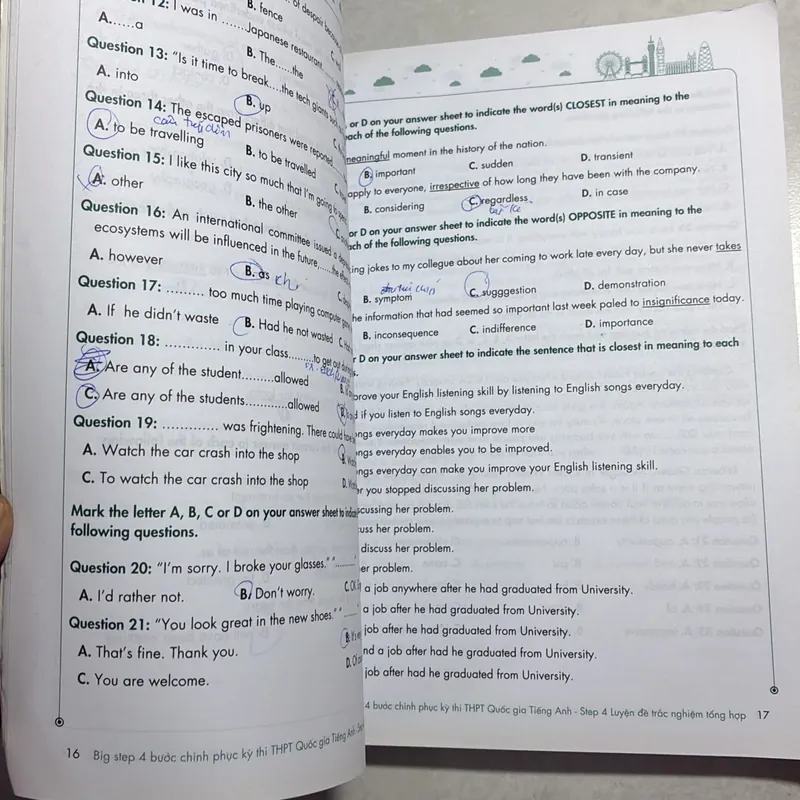 12: I was in .......Japanese restaurant
B. fence
of despair because
A.......a
B. The......the
Question 13: "Is it time to break....the tech giants such
A. into
B. up
Question 14: The escaped prisoners were reported
A. to be travelling
B. to be travelled
Question 15: I like this city so much that I'm going to
A. other
B. the other
Question 16: An international committee issued a
ecosystems will be influenced in the future,......the
A. however
B. as
Question 17: ......... too much time playing computer
A. If he didn't waste
B. Had he not wasted
Question 18: ............. in your class........to get out
A. Are any of the student.........allowed
C. Are any of the students............allowed
Question 19: ............. was frightening. There could
A. Watch the car crash into the shop
C. To watch the car crash into the shop
Mark the letter A, B, C or D on your answer sheet to
following questions.
Question 20: "I'm sorry. I broke your glasses."
A. I'd rather not.
B. Don't worry.
Question 21: "You look great in the new shoes."
A. That's fine. Thank you.
C. You are welcome.
16 Big step 4 bước chinh phục kỳ thi THPT Quốc gia Tiếng Anh
or D on your answer sheet to indicate the word(s) CLOSEST in meaning to the
each of the following questions.
meaningful moment in the history of the nation.
B. important
C. sudden
D. transient
apply to everyone, irrespective of how long they have been with the company.
B. considering
C. regardless
D. in case
or D on your answer sheet to indicate the word(s) OPPOSITE in meaning to the
each of the following questions.
king jokes to my collegue about her coming to work late every day, but she never takes
B. symptom
C. sugggestion
D. demonstration
he information that had seemed so important last week paled to insignificance today.
B. inconsequence
C. indifference
D. importance
r D on your answer sheet to indicate the sentence that is closest in meaning to each
prove your English listening skill by listening to English songs everyday.
d if you listen to English songs everyday.
ongs everyday makes you improve more
ongs everyday enables you to be improved.
ongs everyday can make you improve your English listening skill.
er you stopped discussing her problem.
scussing her problem.
cuss her problem.
discuss her problem.
er problem.
a job anywhere after he had graduated from University.
a job after he had graduated from University.
job after he had graduated from University.
nd a job after had he graduated from University.
job after had he graduated from University.
4 bước chinh phục kỳ thi THPT Quốc gia Tiếng Anh - Step 4 Luyện đề trắc nghiệm tổng hợp 17